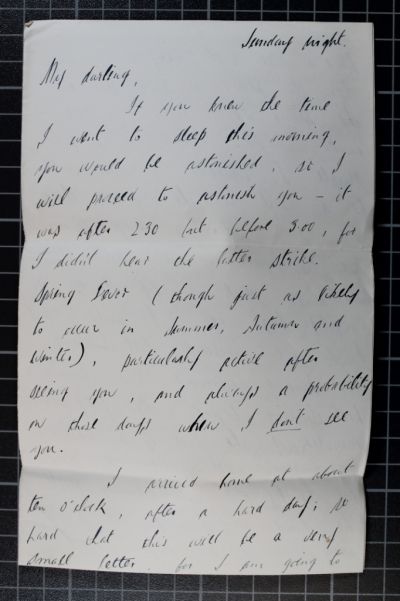 Sunday night.
My darling,
If you knew the time
I went to sleep this morning,
you would be astonished, so I
will proceed to astonish you – it
was after 2.30 but before 3.00, for
I didn't hear the latter strike.
Spring Fever (though just as likely
to occur in Summer, Autumn and
Winter), particularly active after
seeing you, and always a probability
on those days when I dont see
you.
I arrived home at about
ten o'clock, after a hard day; so
hard that this will be a very
small letter, for I am going to